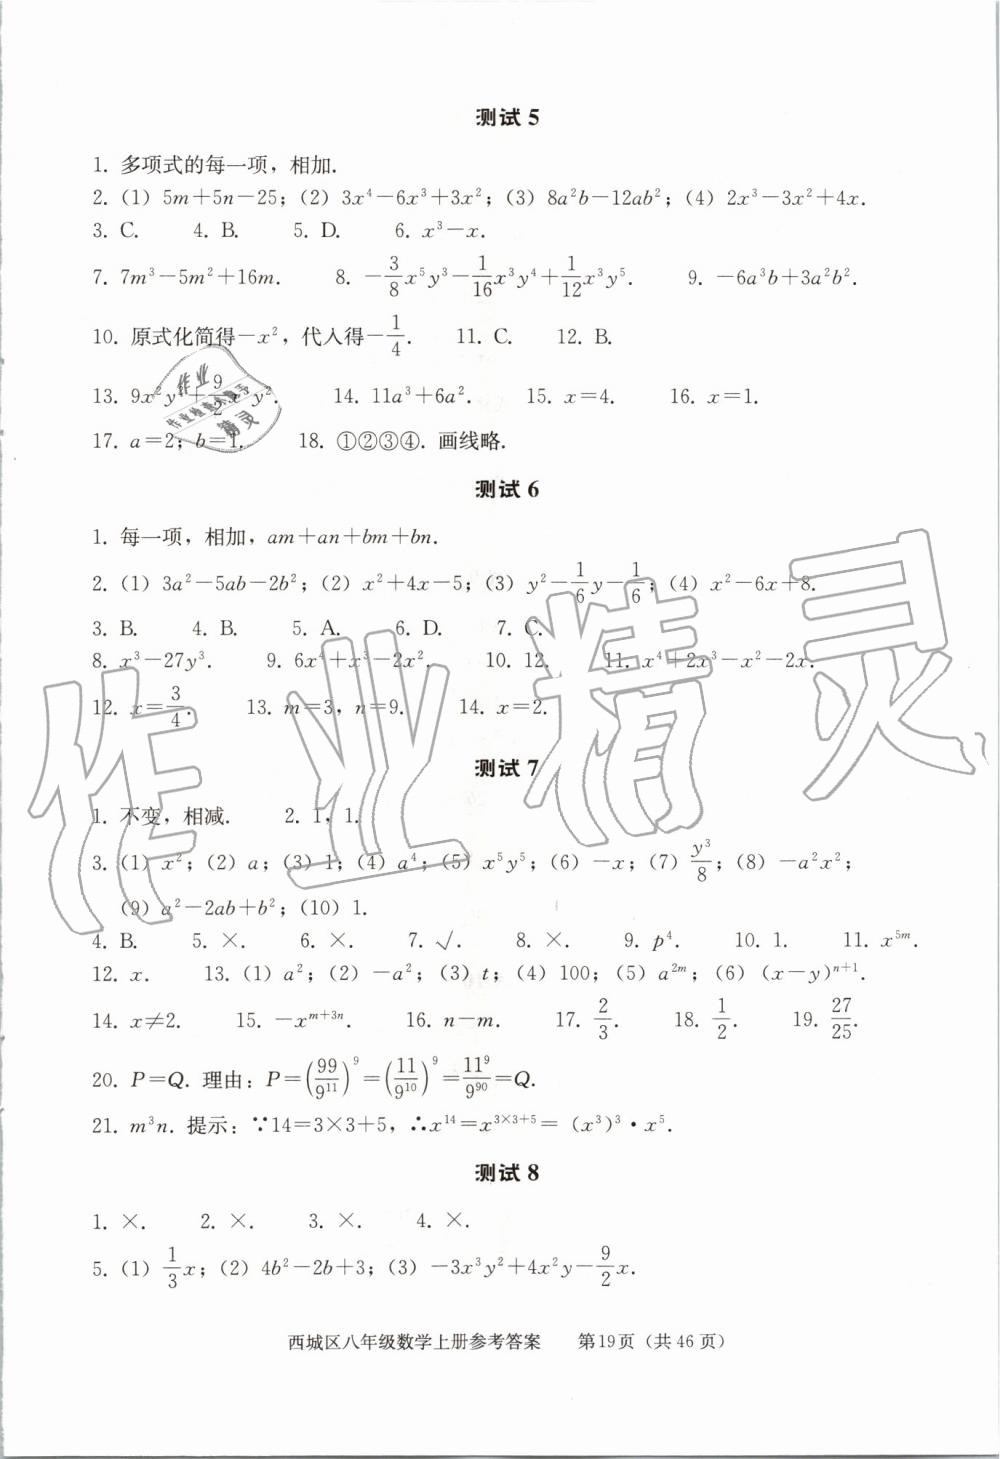 测试 5
1. 多项式的每一项，相加.
2.（1）5m＋5n－25；（2）3x⁴－6x³＋3x²；（3）8a²b－12ab²；（4）2x³－3x²＋4x.
3. C. 4. B. 5. D. 6. x³－x.
7. 7m³－5m²＋16m. 8. －3/8x⁵y³－1/16x³y⁴＋1/12x³y⁵. 9. －6a³b＋3a²b².
10. 原式化简得－x²，代入得－1/4. 11. C. 12. B.
13. 9x²y＋9/2 x y². 14. 11a³＋6a². 15. x＝4. 16. x＝1.
17. a＝2；b＝1. 18. ①②③④. 画线略.
测试 6
1. 每一项，相加，am＋an＋bm＋bn.
2.（1）3a²－5ab－2b²；（2）x²＋4x－5；（3）y²－1/6y－1/6；（4）x²－6x＋8.
3. B. 4. B. 5. A. 6. D. 7. C.
8. x³－27y³. 9. 6x⁴＋x³－2x². 10. 12. 11. x⁴＋2x³－x²－2x.
12. x＝3/4. 13. m＝3，n＝9. 14. x＝2.
测试 7
1. 不变，相减. 2. 1，1.
3.（1）x²；（2）a；（3）1；（4）a⁴；（5）x⁵y⁵；（6）－x；（7）y³/8；（8）－a²x²；
（9）a²－2ab＋b²；（10）1.
4. B. 5. ×. 6. ×. 7. √. 8. ×. 9. p⁴. 10. 1. 11. x⁵ᵐ.
12. x. 13.（1）a²；（2）－a²；（3）t；（4）100；（5）a²ᵐ；（6）(x－y)ⁿ⁺¹.
14. x≠2. 15. －xᵐ⁺³ⁿ. 16. n－m. 17. 2/3. 18. 1/2. 19. 27/25.
20. P＝Q. 理由：P＝(99/9¹¹)⁹＝(11/9¹⁰)⁹＝11⁹/9⁹⁰＝Q.
21. m³n. 提示：∵14＝3×3＋5，∴x¹⁴＝x³ˣ³⁺⁵＝(x³)³·x⁵.
测试 8
1. ×. 2. ×. 3. ×. 4. ×.
5.（1）1/3x；（2）4b²－2b＋3；（3）－3x³y²＋4x²y－9/2x.
西城区八年级数学上册参考答案 第19页（共 46 页）
作业精灵
作业
精灵